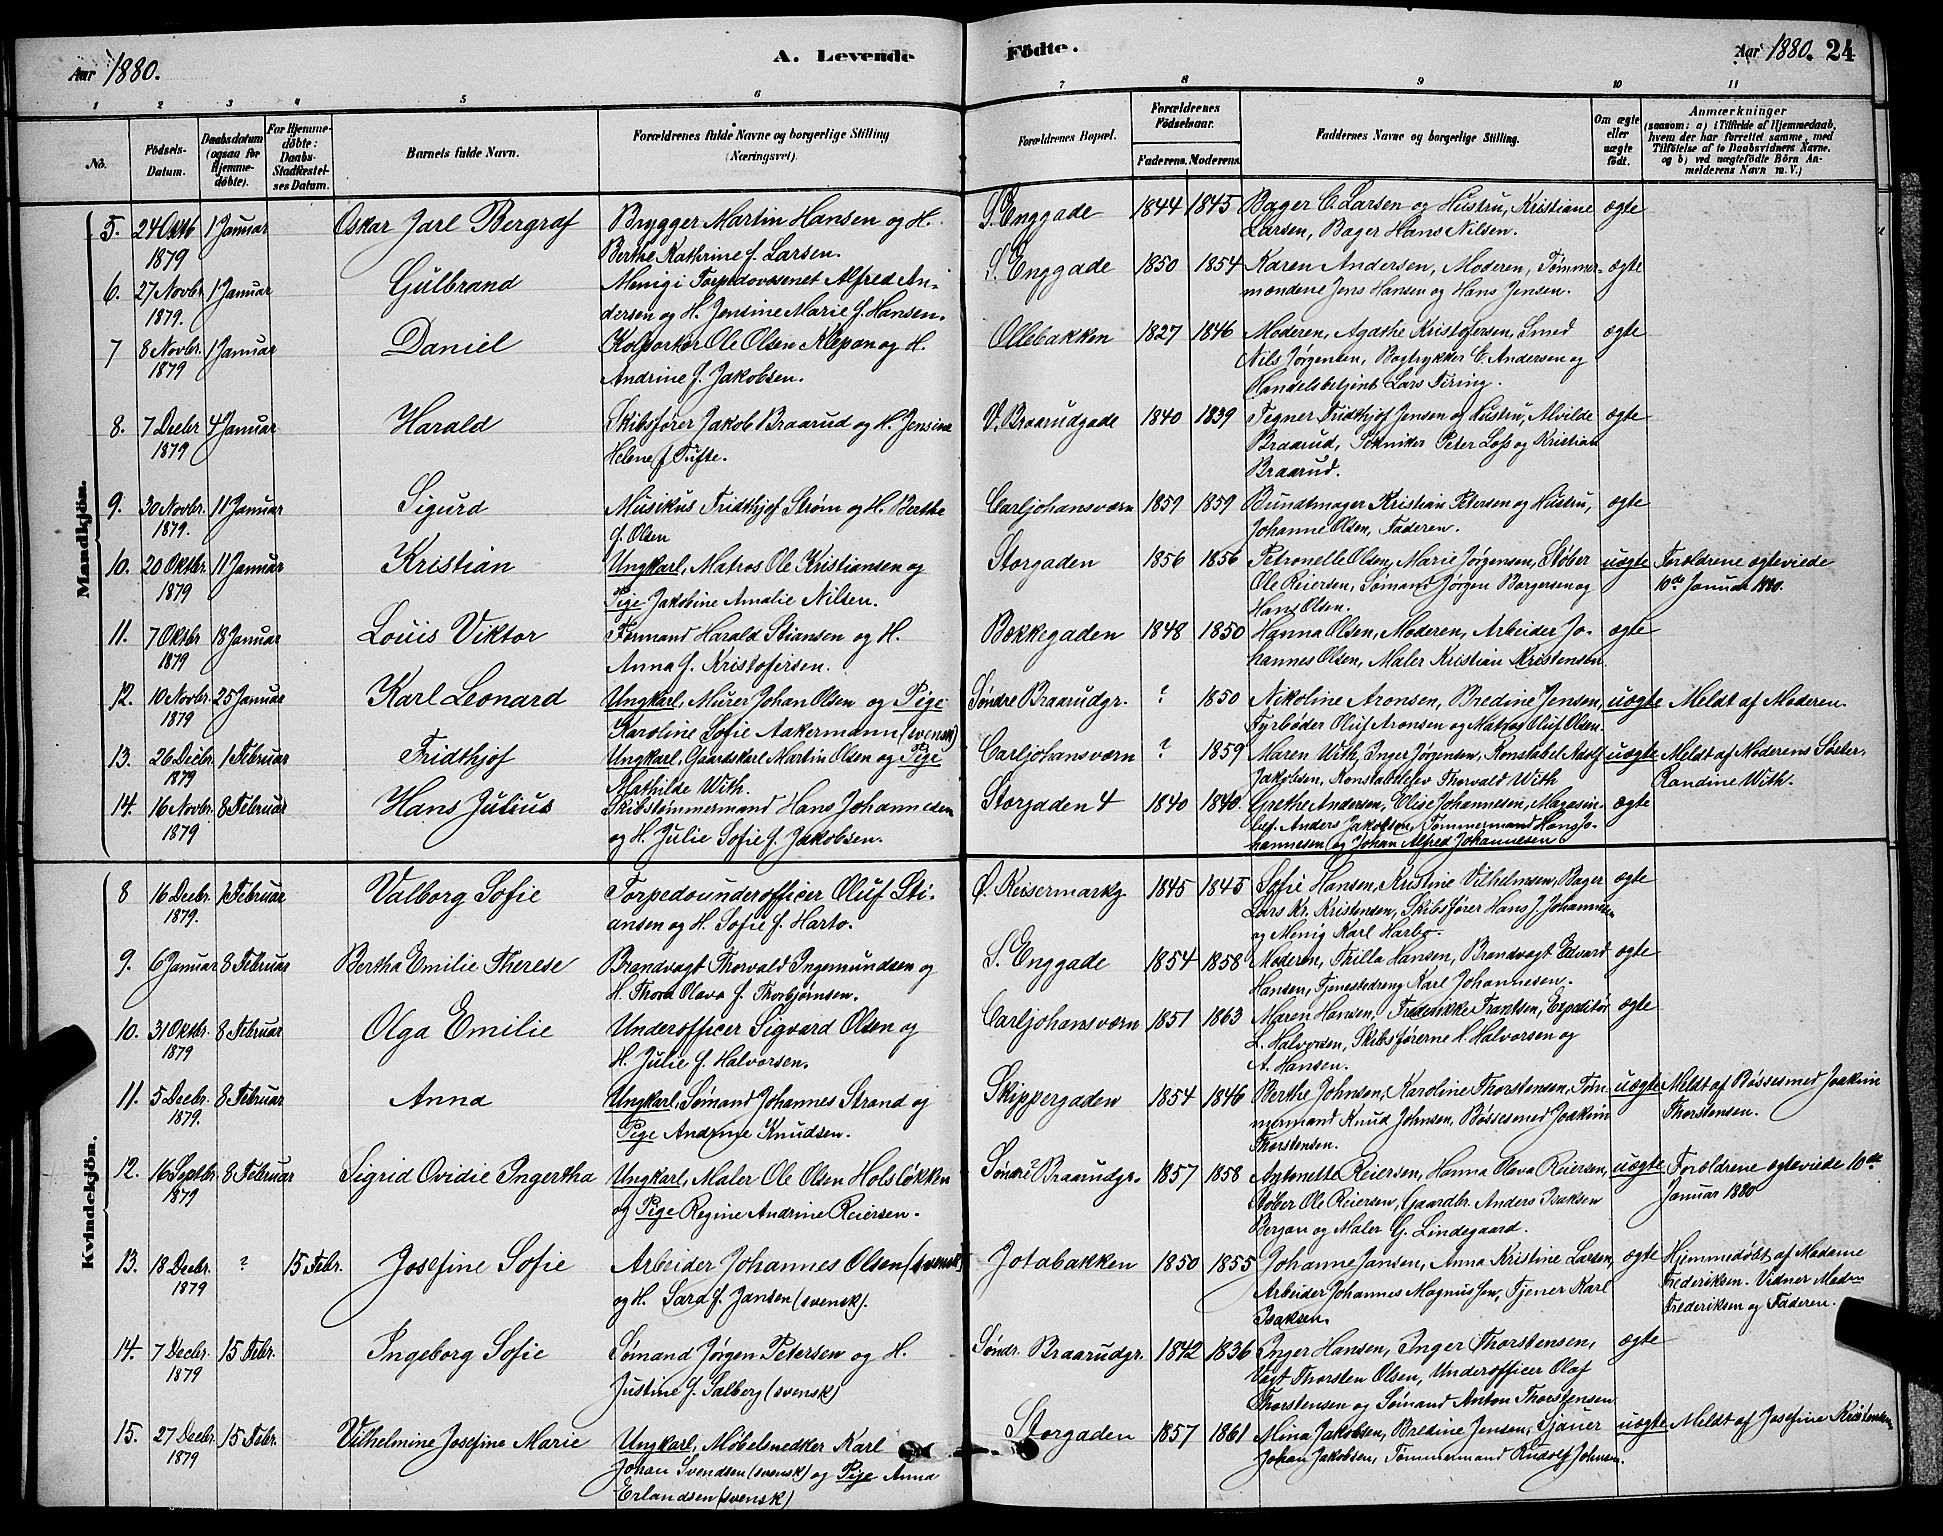 Aar 1880.
A. Levende
Födte.
Aar 1880. 24
1 2 3 4 5 6 7 8 9 10 11
No. Födsels-Datum. Daabsdatum (ogsaa for Hjemme-döbte). For Hjemme-döbte: Daabs-Stadfæstel-ses Datum. Barnets fulde Navn. Forældrenes fulde Navne og borgerlige Stilling (Næringsvei). Forældrenes Bopæl. Forældrenes Födselsaar. Faderens. Moderens. Faddernes Navne og borgerlige Stilling. Om ægte eller uægte födt. Anmærkninger (saasom: a) i Tilfælde af Hjemmedaab, hvem der har forrettet samme, med Tilföielse af to Daabsvidners Navne, og b) ved uægtefödte Börn An-melderens Navn m. V.)
Mandkjön.
5. 24 Oktb 1 Januar Oskar Jarl Bergraf Brygger Martin Hansen og H. S. Enggade 1844 1845 Bager C. Larsen og Hustru, Kristiane ægte
1879 Berthe Kathrine f. Larsen. Larsen, Bager Hans Nilsen.
6. 27 Novbr. 1 Januar Gulbrand Menig i Torpedovæsenet Alfred An- S. Enggade 1850 1854 Karen Andersen, Moderen, Tømmer- ægte
1879. dersen og H. Jensine Marie f. Hansen. mændene Jens Hansen og Hans Jensen.
7 8 Novbr. 1 Januar Daniel Kolportør Ole Olsen Klepan og H. Ollebakken 1827 1846 Moderen, Agathe Kristofersen, Smed ægte
1879 Andrine f. Jakobsen. Nils Jørgensen, Bogtrykker C. Andersen og
Handelsbetjent Lars Firing.
8. 7 Decbr 4 Januar Harald Skibsfører Jakob Braarud og H. Jensine V. Braarudgade 1840 1839 Tegner Fridthjof Jensen og Hustru, Alvilde ægte
1879 Helene f. Tufte. Braarud, Tekniker Peter Loss og Kristian
Braarud.
9. 30 Novbr. 11 Januar Sigurd Musikus Fridthjof Strøm og H. Berthe Carljohansværn 1859 1859 Bundtmager Kristian Petersen og Hustru, ægte
1879. f. Olsen Johanne Olsen, Faderen.
10. 20 Oktbr. 11 Januar Kristian Ungkarl, Matros Ole Kristiansen og Storgaden 1856 1856 Petronelle Olsen, Marie Jørgensen, Støber uægte Forældrene egteviede
1879 Pige Jakobine Amalie Nilsen. Ole Reiersen, Sømand Jørgen Borgersen og 10de Januar 1880.
Hans Olsen.
11. 7 Oktbr 18 Januar Louis Viktor Formand Harald Stiansen og H. Bækkegaden 1848 1850 Hanna Olsen, Moderen, Arbeider Jo- ægte
1879 Anna f. Kristofersen. hannes Olsen, Maler Kristian Kristensen
12. 10 Novbr. 25 Januar Karl Leonard Ungkarl, Murer Johan Olsen og Pige Søndre Braarudgr. ? 1850 Nikoline Aronsen, Bredine Jensen, uægte Meldt af Moderen.
1879 Karoline Sofie Aakermann (svensk) Fyrbøder Oluf Aronsen og Matros Oluf Olsen.
13. 26 Decbr. 1 Februar Fridthjof Ungkarl, Gaardskarl Martin Olsen og Pige Carljohansværn ? 1859 Maren With, Inger Jørgensen, Konstabel Adolf uægte Meldt af Moderens Søster,
1879 Mathilde With. Jakobsen, Konstabelelev Thorvald With Randine With.
14. 16 Novbr. 8 Februar Hans Julius Skibstømmermand Hans Johannesen Storgaden 4 1840 1840. Grethe Andersen, Elise Johannesen, Magasin- ægte
1879 og H. Julie Sofie f. Jakobsen. bef. Anders Jakobsen, Tømmermand Hans Jo-
hannesen og Johan Alfred Johannesen
Kvindekjön.
8 16 Decbr. 1 Februar Valborg Sofie Torpedounderofficer Oluf Sti- Ø. Keisermarkg 1845 1845 Sofie Hansen, Kristine Vilhelmsen, Bager ægte
1879. ansen og H. Sofie f. Harbo. Lars Kr. Kristensen, Skibsfører Hans J. Johannesen
og Menig Karl Harbo.
9. 6 Januar 8 Februar Bertha Emilie Therese Brandvagt Thorvald Ingemundsen og S. Enggade 1854 1858 Moderen, Thilla Hansen, Brandvagt Edvard ægte
H. Thora Olava f. Thorbjørnsen. Hansen, Tjenestedreng Karl Johannesen.
10. 31 Oktbr. 8 Februar Olga Emilie Underofficer Sigvard Olsen og Carljohansværn 1851 1863 Maren Hansen, Frederikke Frantsen, Expeditør ægte
1879 H. Julie f. Halvorsen. L. Halvorsen, Skibsførerne H. Halvorsen og
A. Hansen.
11. 5 Decbr. 8 Februar Anna Ungkarl, Sømand Johannes Strand og Skippergaden 1854 1846 Berthe Johnsen, Karoline Thorstensen, Tøm- uægte Meldt af Bøssesmed Joakim
1879. Pige Andrine Knudsen. mermand Knud Johnsen, Bøssesmed Joakim Thorstensen.
Thorstensen.
12. 16 Septbr. 8 Februar Sigrid Ovidie Ingertha Ungkarl, Maler Ole Olsen Holsløkken Søndre Braarudgr. 1857 1858 Antonette Reiersen, Hanna Olava Reiersen, uægte Forældrene egteviede 10de
1879 og Pige Regine Andrine Reiersen. Støber Ole Reiersen, Gaardbr. Anders Isaksen Januar 1880
Bergan og Maler G. Lindegaard.
13. 18 Decbr. ? 15 Febr. Josefine Sofie Arbeider Johannes Olsen (svensk) Jotabakken 1850 1855 Johanne Jansen, Anna Kristine Larsen, ægte Hjemmedøbt af Madame
1879 og H. Sara f. Jansen (svensk). Arbeider Johannes Magnussen, Tjener Karl Frederiksen. Vidner Madm
Isaksen. Frederiksen og Faderen.
14. 7 Decbr. 15 Febr. Ingeborg Sofie Sømand Jørgen Petersen og H. Søndr. Braarudgr. 1842 1836 Inger Hansen, Inger Thorstensen, ægte
1879 Justine f. Salberg (svensk) Vagt Thorsten Olsen, Underofficer Olaf
Thorstensen og Sømand Anton Thorstensen
15. 27 Decbr. 15 Febr. Vilhelmine Josefine Marie Ungkarl, Møbelsnedker Karl Storgaden 1857 1861 Mina Jakobsen, Bredine Jensen, Sjauer uægte Meldt af Josefine Kristensen
1879 Johan Svendsen (svensk) og Pige Anna Johan Jakobsen, Tømmermand Rudolf Johnsen.
Erlandsen (svensk)